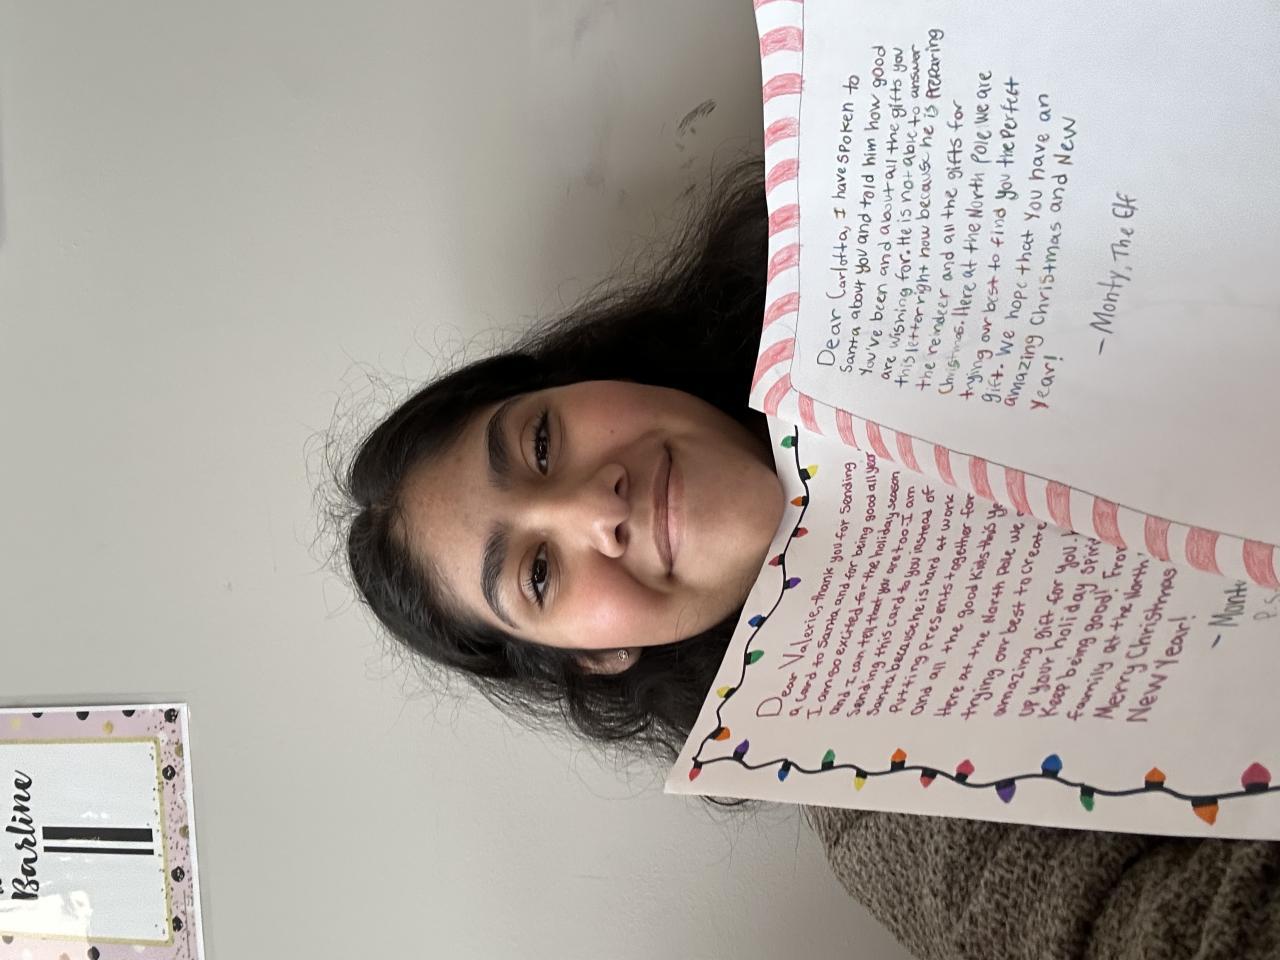 Barline
Dear Valerie, thank you for sending
a card to Santa and for being good all year
I am so excited for the holiday season
and I can tell that you are too. I am
sending this card to you instead of
Santa because he is hard at work
putting presents together for
and all the good kids this
Here at the North Pole we
trying our best to create
amazing gift for you
up your holiday
Keep being good! From
family at the North
Merry Christmas
New Year!
Dear Carlotta, I have spoken to
Santa about you and told him how good
you've been and about all the gifts you
are wishing for. He is not able to answer
this letter right now because he is preparing
the reindeer and all the gifts for
Christmas. Here at the North Pole we are
trying our best to find you the perfect
gift. We hope that you have an
amazing Christmas and New
Year!
- Monty, The Elf